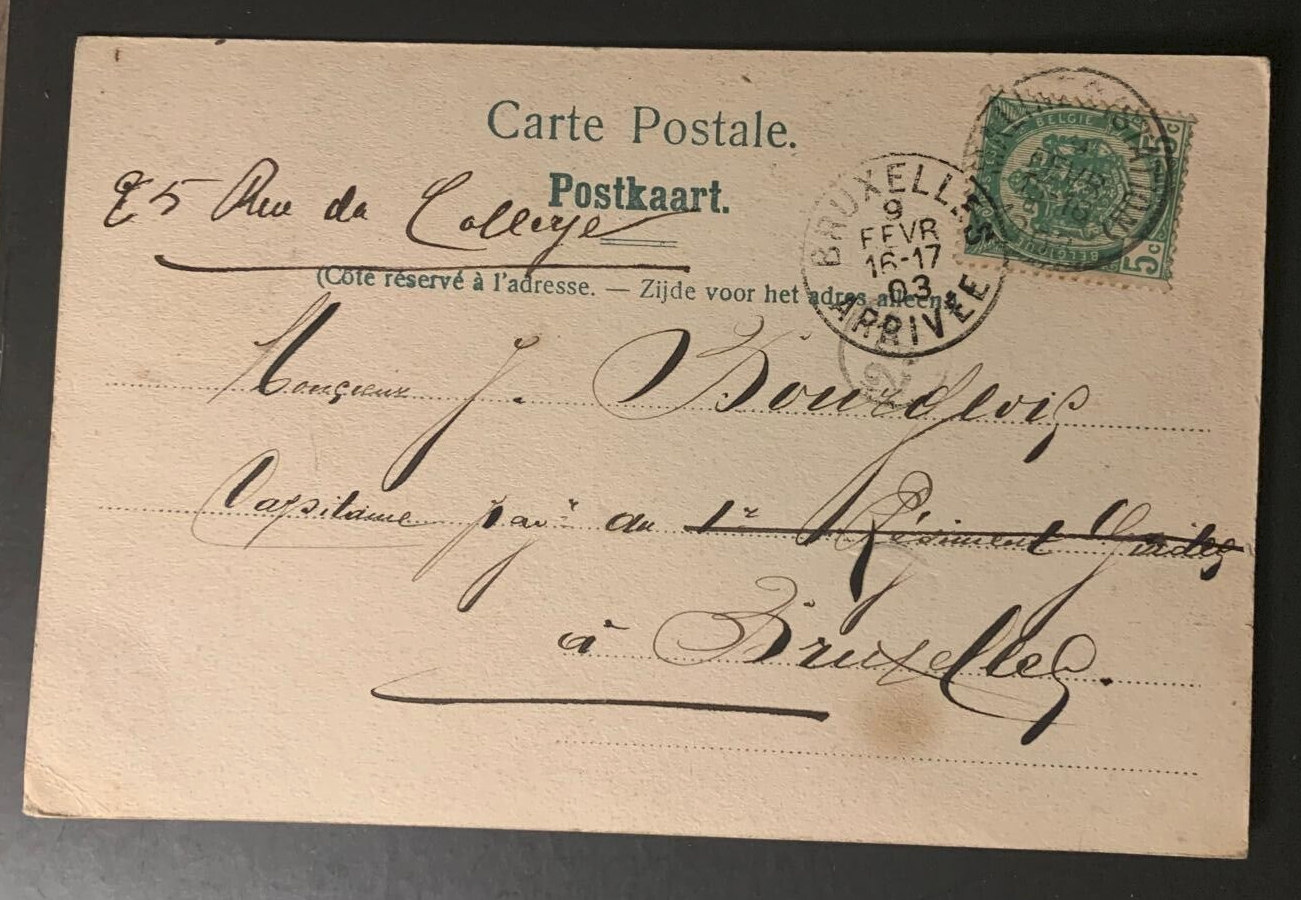 Carte Postale.
Postkaart.
25 Rue du College
(Côté réservé à l'adresse. — Zijde voor het adres alleen.)
BRUXELLES
9
FEVR
16-17
03
ARRIVÉE
BELGIE
BELGIQUE
5c 5c
Monsieur J. Bourgeois
Capitaine pay^r du 1^er Régiment Guides
à Bruxelles.